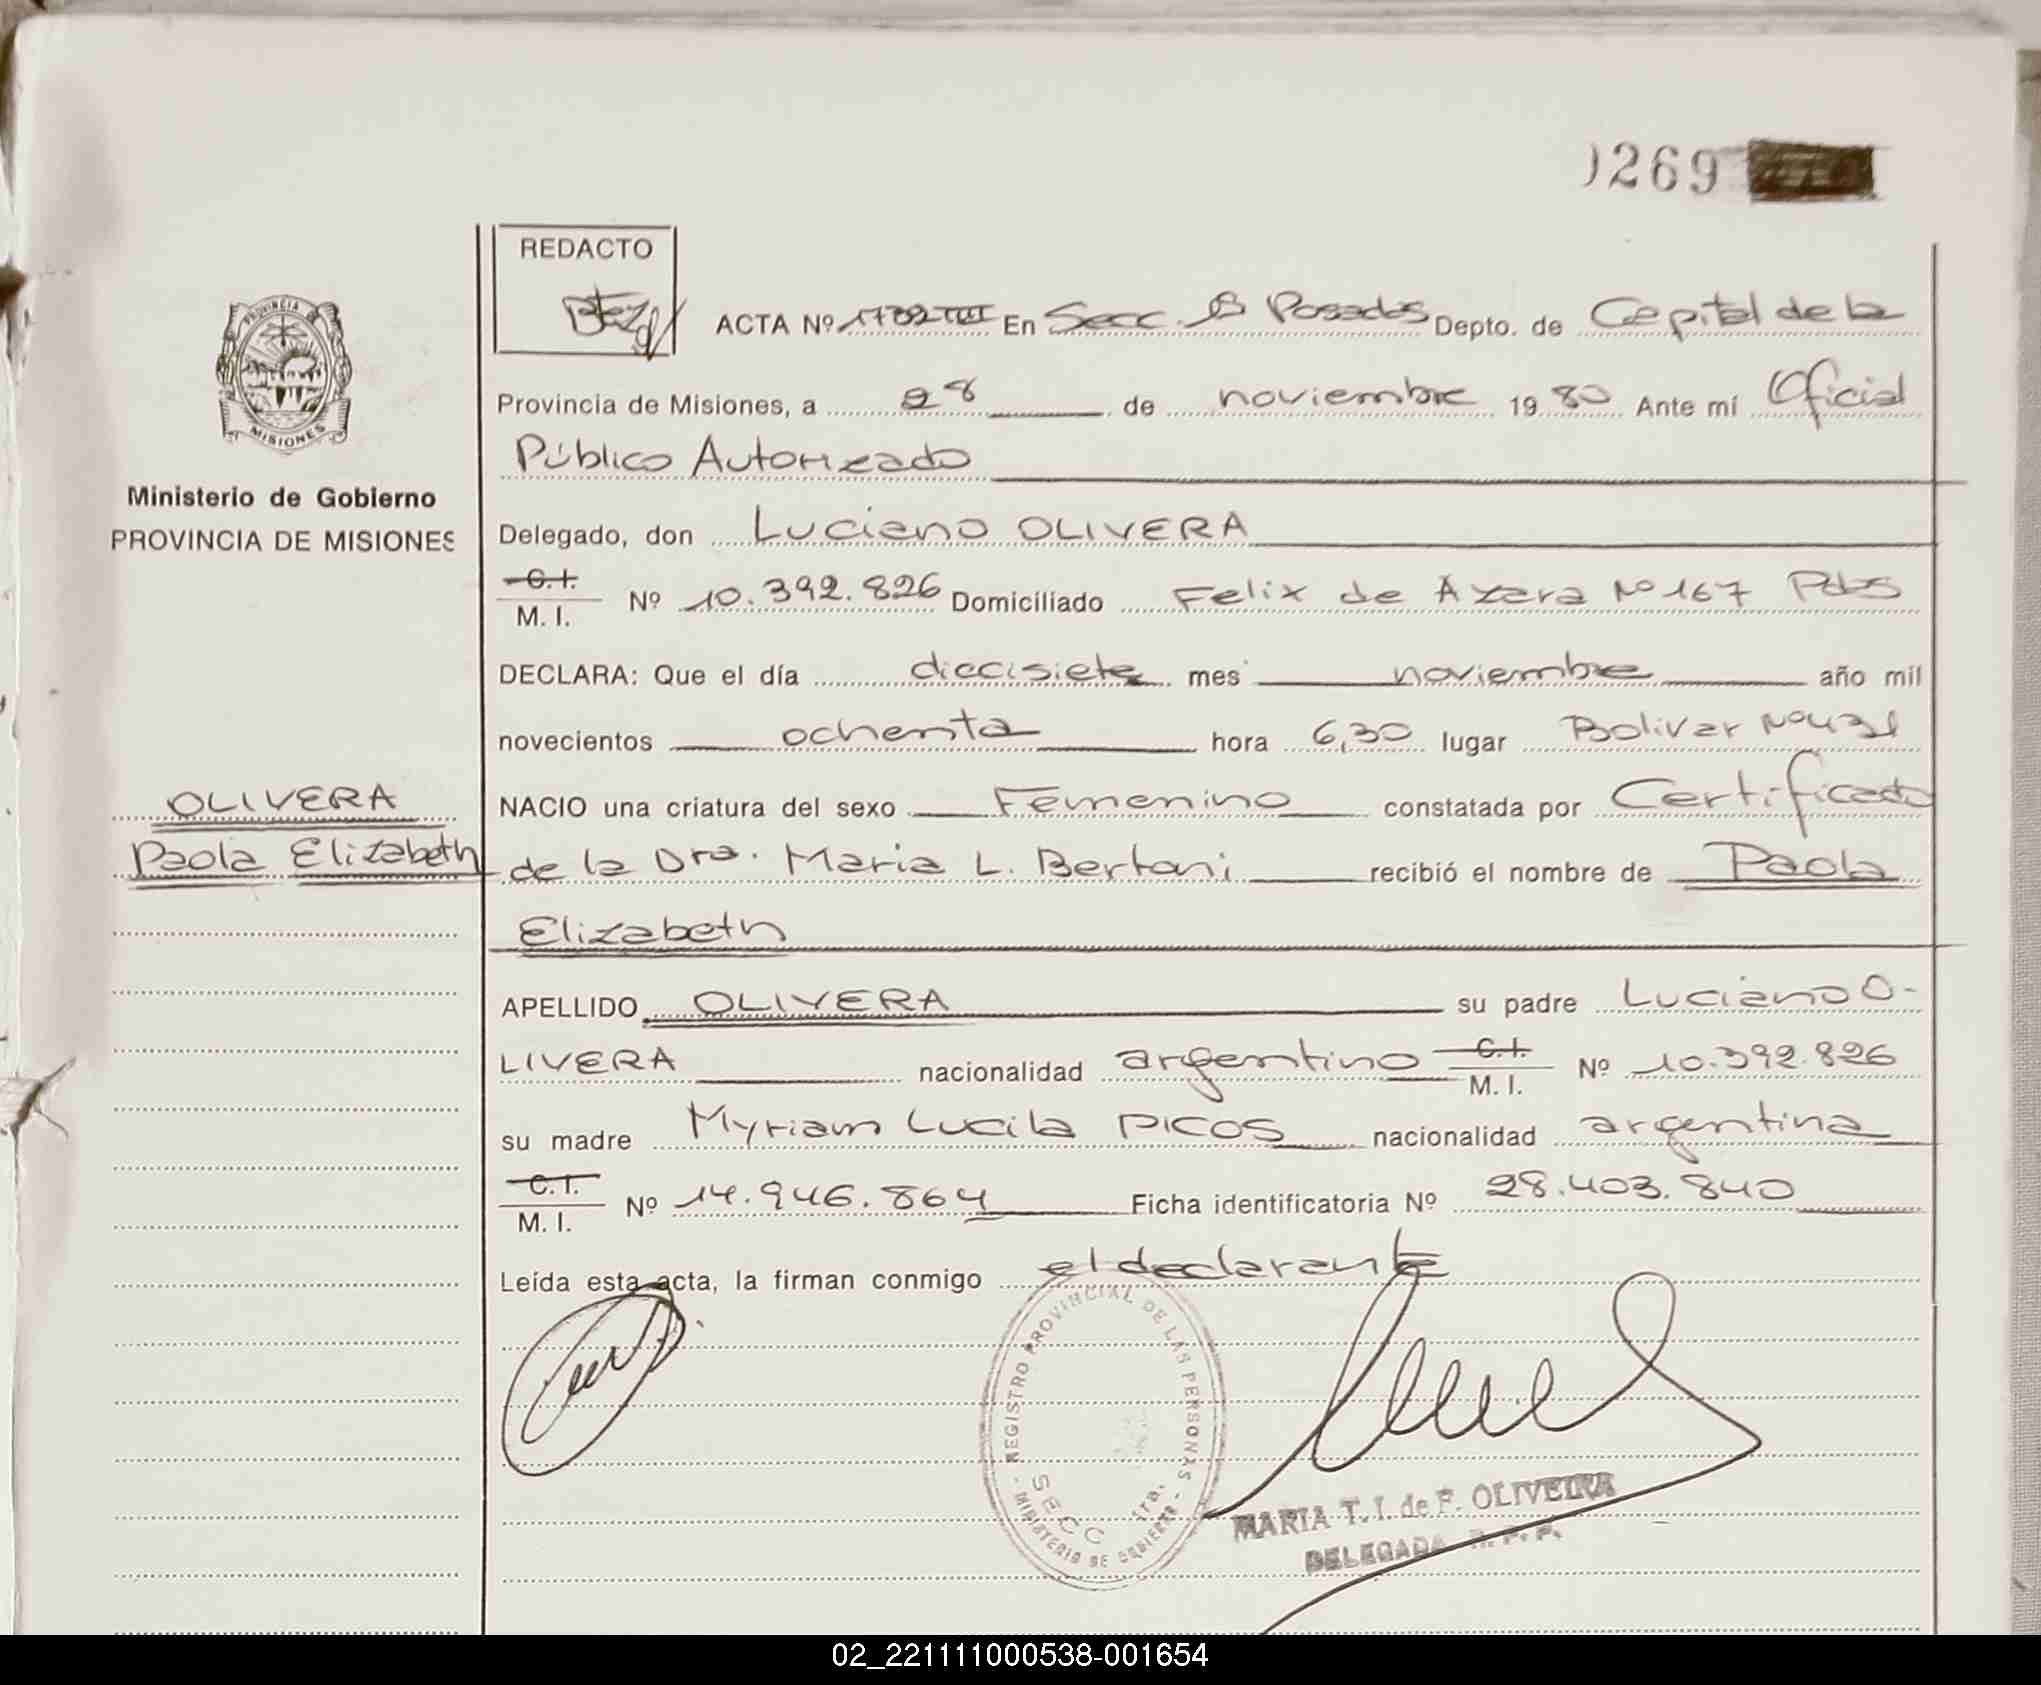 0269
REDACTO
ACTA Nº 1782 TIII En Secc. 1ª Posadas Depto. de Capital de la
PROVINCIA
MISIONES
Provincia de Misiones, a 28 de noviembre 1980 Ante mí Oficial
Público Autorizado
Ministerio de Gobierno
PROVINCIA DE MISIONES
Delegado, don Luciano OLIVERA
C.I.
M. I. Nº 10.392.826 Domiciliado Felix de Azara Nº 167 Pdas
DECLARA: Que el día diecisiete mes noviembre año mil
novecientos ochenta hora 6,30 lugar Bolivar Nº 431
OLIVERA
Paola Elizabeth
NACIO una criatura del sexo Femenino constatada por Certificado
de la Dra. Maria L. Bertoni recibió el nombre de Paola
Elizabeth
APELLIDO OLIVERA su padre Luciano O-
LIVERA nacionalidad argentino C.I. M. I. Nº 10.392.826
su madre Myriam Lucila PICOS nacionalidad argentina
C.I.
M. I. Nº 14.946.864 Ficha identificatoria Nº 28.403.840
Leída esta acta, la firman conmigo el declarante
REGISTRO PROVINCIAL DE LAS PERSONAS
SECC 1ra.
MINISTERIO DE GOBIERNO
MARIA T. I. de F. OLIVEIRA
DELEGADA R. P. P.
02_221111000538-001654